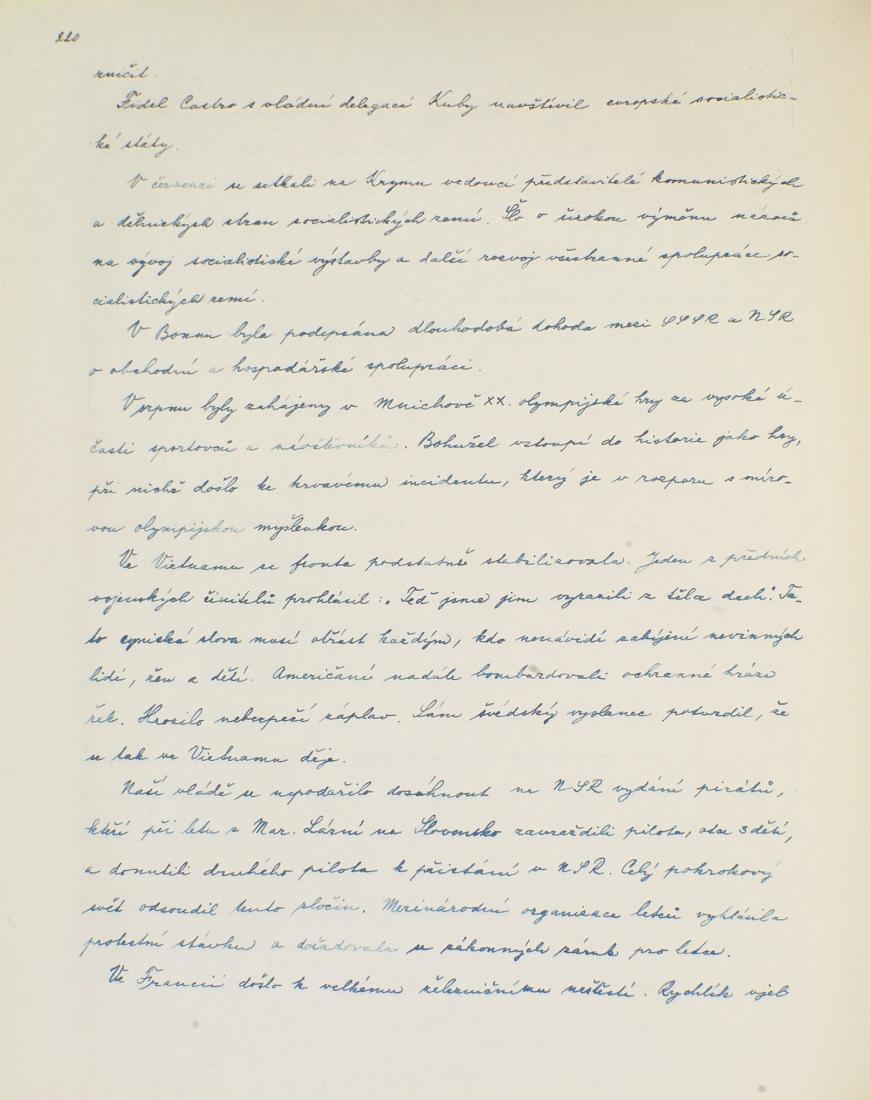 220
zničit.
Fidel Castro s vládní delegací Kuby navštívil evropské socialistic-
ké státy.
V červenci se setkali na Krymu vedoucí představitelé komunistických
a dělnických stran socialistických zemí. Šlo o širokou výměnu názorů
na vývoj socialistické výstavby a další rozvoj všestranné spolupráce so-
cialistických zemí.
V Bonnu byla podepsána dlouhodobá dohoda mezi SSSR a NSR
o obchodní a hospodářské spolupráci.
V srpnu byly zahájeny v Mnichově XX. olympijské hry za vysoké ú-
časti sportovců a návštěvníků. Bohužel vstoupí do historie jako hry,
při nichž došlo ke krvavému incidentu, který je v rozporu s míro-
vou olympijskou myšlenkou.
Ve Vietnamu se fronta podstatně stabilizovala. Jeden z předních
vojenských činitelů prohlásil: „Teď jsme jim vyrazili z těla dech". Ta-
to cynická slova musí otřást každým, kdo nenávidí zabíjení nevinných
lidí, žen a dětí. Američané nadále bombardovali ochranné hráze
řek. Hrozilo nebezpečí záplav. Sám švédský vyslanec potvrdil, že
se tak ve Vietnamu děje.
Naší vládě se nepodařilo dosáhnout na NSR vydání pirátů,
kteří při letu z Mar. Lázní na Slovensko zavraždili pilota, otce 3 dětí,
a donutili druhého pilota k přistání v NSR. Celý pokrokový
svět odsoudil tento zločin. Mezinárodní organizace letců vyhlásila
protestní stávku a dožadovala se zákonných záruk pro letce.
Ve Francii došlo k velkému železničnímu neštěstí. Rychlík vjel